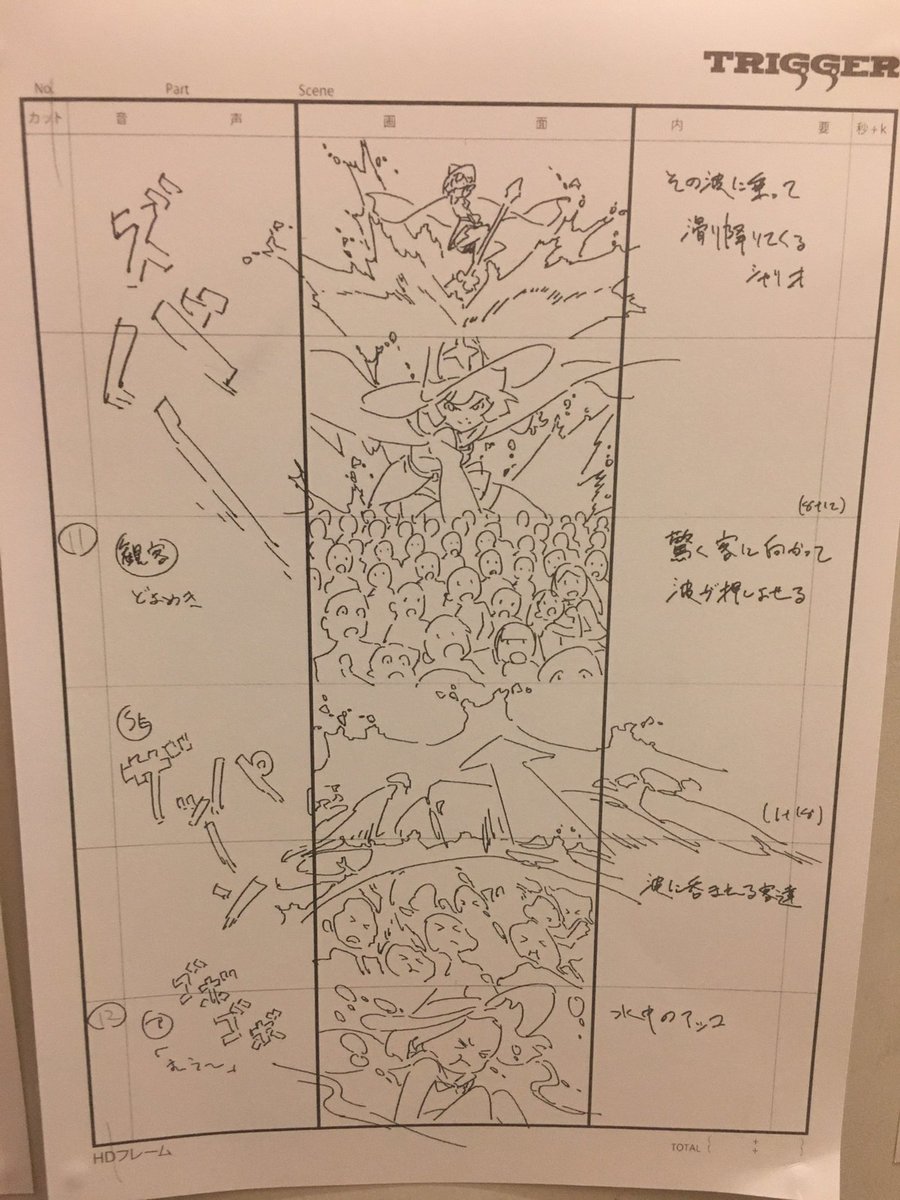 TRIGGER
No. Part Scene
カット 音 声 画 面 内 要 秒+k
その波に乗って
滑り降りてくる
シャリオ
(8+12)
11
観客
どよめき
驚く客に向かって
波が押しよせる
SE
(1+18)
波に呑まれる客達
12
ア
水中のアッコ
HDフレーム
TOTAL ( + + )